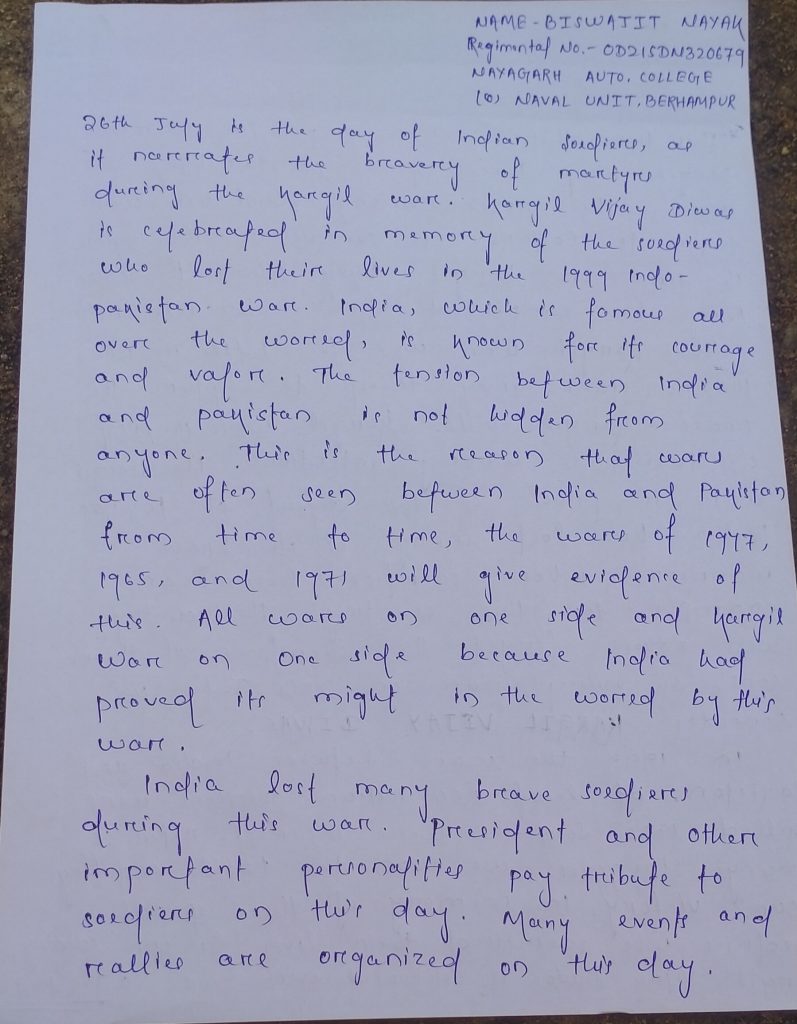 NAME - BISWAJIT NAYAK
Regimental No. - OD21SDN320679
NAYAGARH AUTO. COLLEGE
(O) NAVAL UNIT, BERHAMPUR
26th July is the day of Indian soldiers, as
it narrates the bravery of martyrs
during the Kargil war. Kargil Vijay Diwas
is celebrated in memory of the soldiers
who lost their lives in the 1999 Indo-
Pakistan war. India, which is famous all
over the world, is known for its courage
and valor. The tension between India
and Pakistan is not hidden from
anyone. This is the reason that wars
are often seen between India and Pakistan
from time to time, the wars of 1947,
1965, and 1971 will give evidence of
this. All wars on one side and Kargil
War on one side because India had
proved its might in the world by this
war.
India lost many brave soldiers
during this war. President and other
important personalities pay tribute to
soldiers on this day. Many events and
rallies are organized on this day.